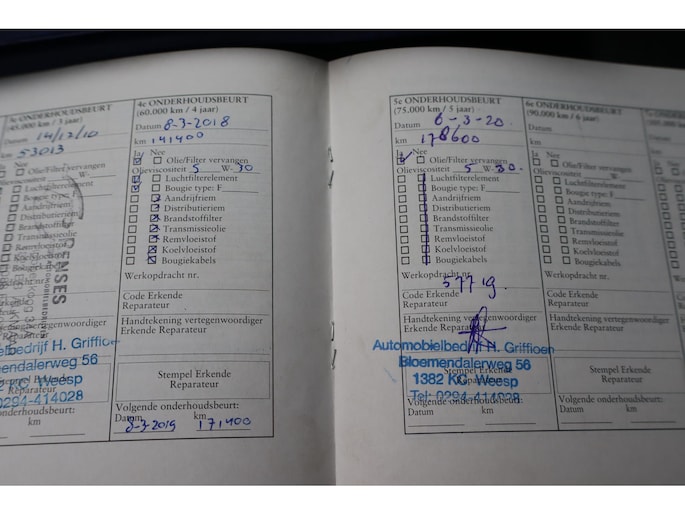 3e ONDERHOUDSBEURT
(45.000 km / 3 jaar)
Datum 14/12/10
km 53013
Ja Nee
Olie/Filter vervangen
Olieviscositeit W-
Luchtfilterelement
Bougie type: F
Aandrijfriem
Distributieriem
Brandstoffilter
Transmissieolie
Remvloeistof
Koelvloeistof
Bougiekabels
Werkopdracht nr.
Code Erkende
Reparateur
Handtekening vertegenwoordiger
Erkende Reparateur
Stempel Erkende
Reparateur
Volgende onderhoudsbeurt:
Datum km
4e ONDERHOUDSBEURT
(60.000 km / 4 jaar)
Datum 8-3-2018
km 141400
Ja Nee
Olie/Filter vervangen
Olieviscositeit 5 W-30
Luchtfilterelement
Bougie type: F
Aandrijfriem
Distributieriem
Brandstoffilter
Transmissieolie
Remvloeistof
Koelvloeistof
Bougiekabels
Werkopdracht nr.
Code Erkende
Reparateur
Handtekening vertegenwoordiger
Erkende Reparateur
elbedrijf H. Griffioen
emendalerweg 56
Weesp
0294-414028
Stempel Erkende
Reparateur
Volgende onderhoudsbeurt:
Datum km
8-3-2019 171400
5e ONDERHOUDSBEURT
(75.000 km / 5 jaar)
Datum 6-3-20
km 178600
Ja Nee
Olie/Filter vervangen
Olieviscositeit 5 W-30.
Luchtfilterelement
Bougie type: F
Aandrijfriem
Distributieriem
Brandstoffilter
Transmissieolie
Remvloeistof
Koelvloeistof
Bougiekabels
Werkopdracht nr.
57719.
Code Erkende
Reparateur
Handtekening vertegenwoordiger
Erkende Reparateur
Automobielbedrijf H. Griffioen
Bloemendalerweg 56
1382 KC Weesp
Tel: 0294-414028
Stempel Erkende
Reparateur
Volgende onderhoudsbeurt:
Datum km
6e ONDERHOUDSBEURT
(90.000 km / 6 jaar)
Datum
km
Ja Nee
Olie/Filter vervangen
Olieviscositeit W-
Luchtfilterelement
Bougie type: F
Aandrijfriem
Distributieriem
Brandstoffilter
Transmissieolie
Remvloeistof
Koelvloeistof
Bougiekabels
Werkopdracht nr.
Code Erkende
Reparateur
Handtekening vertegenwoordiger
Erkende Reparateur
Stempel Erkende
Reparateur
Volgende onderhoudsbeurt:
Datum km